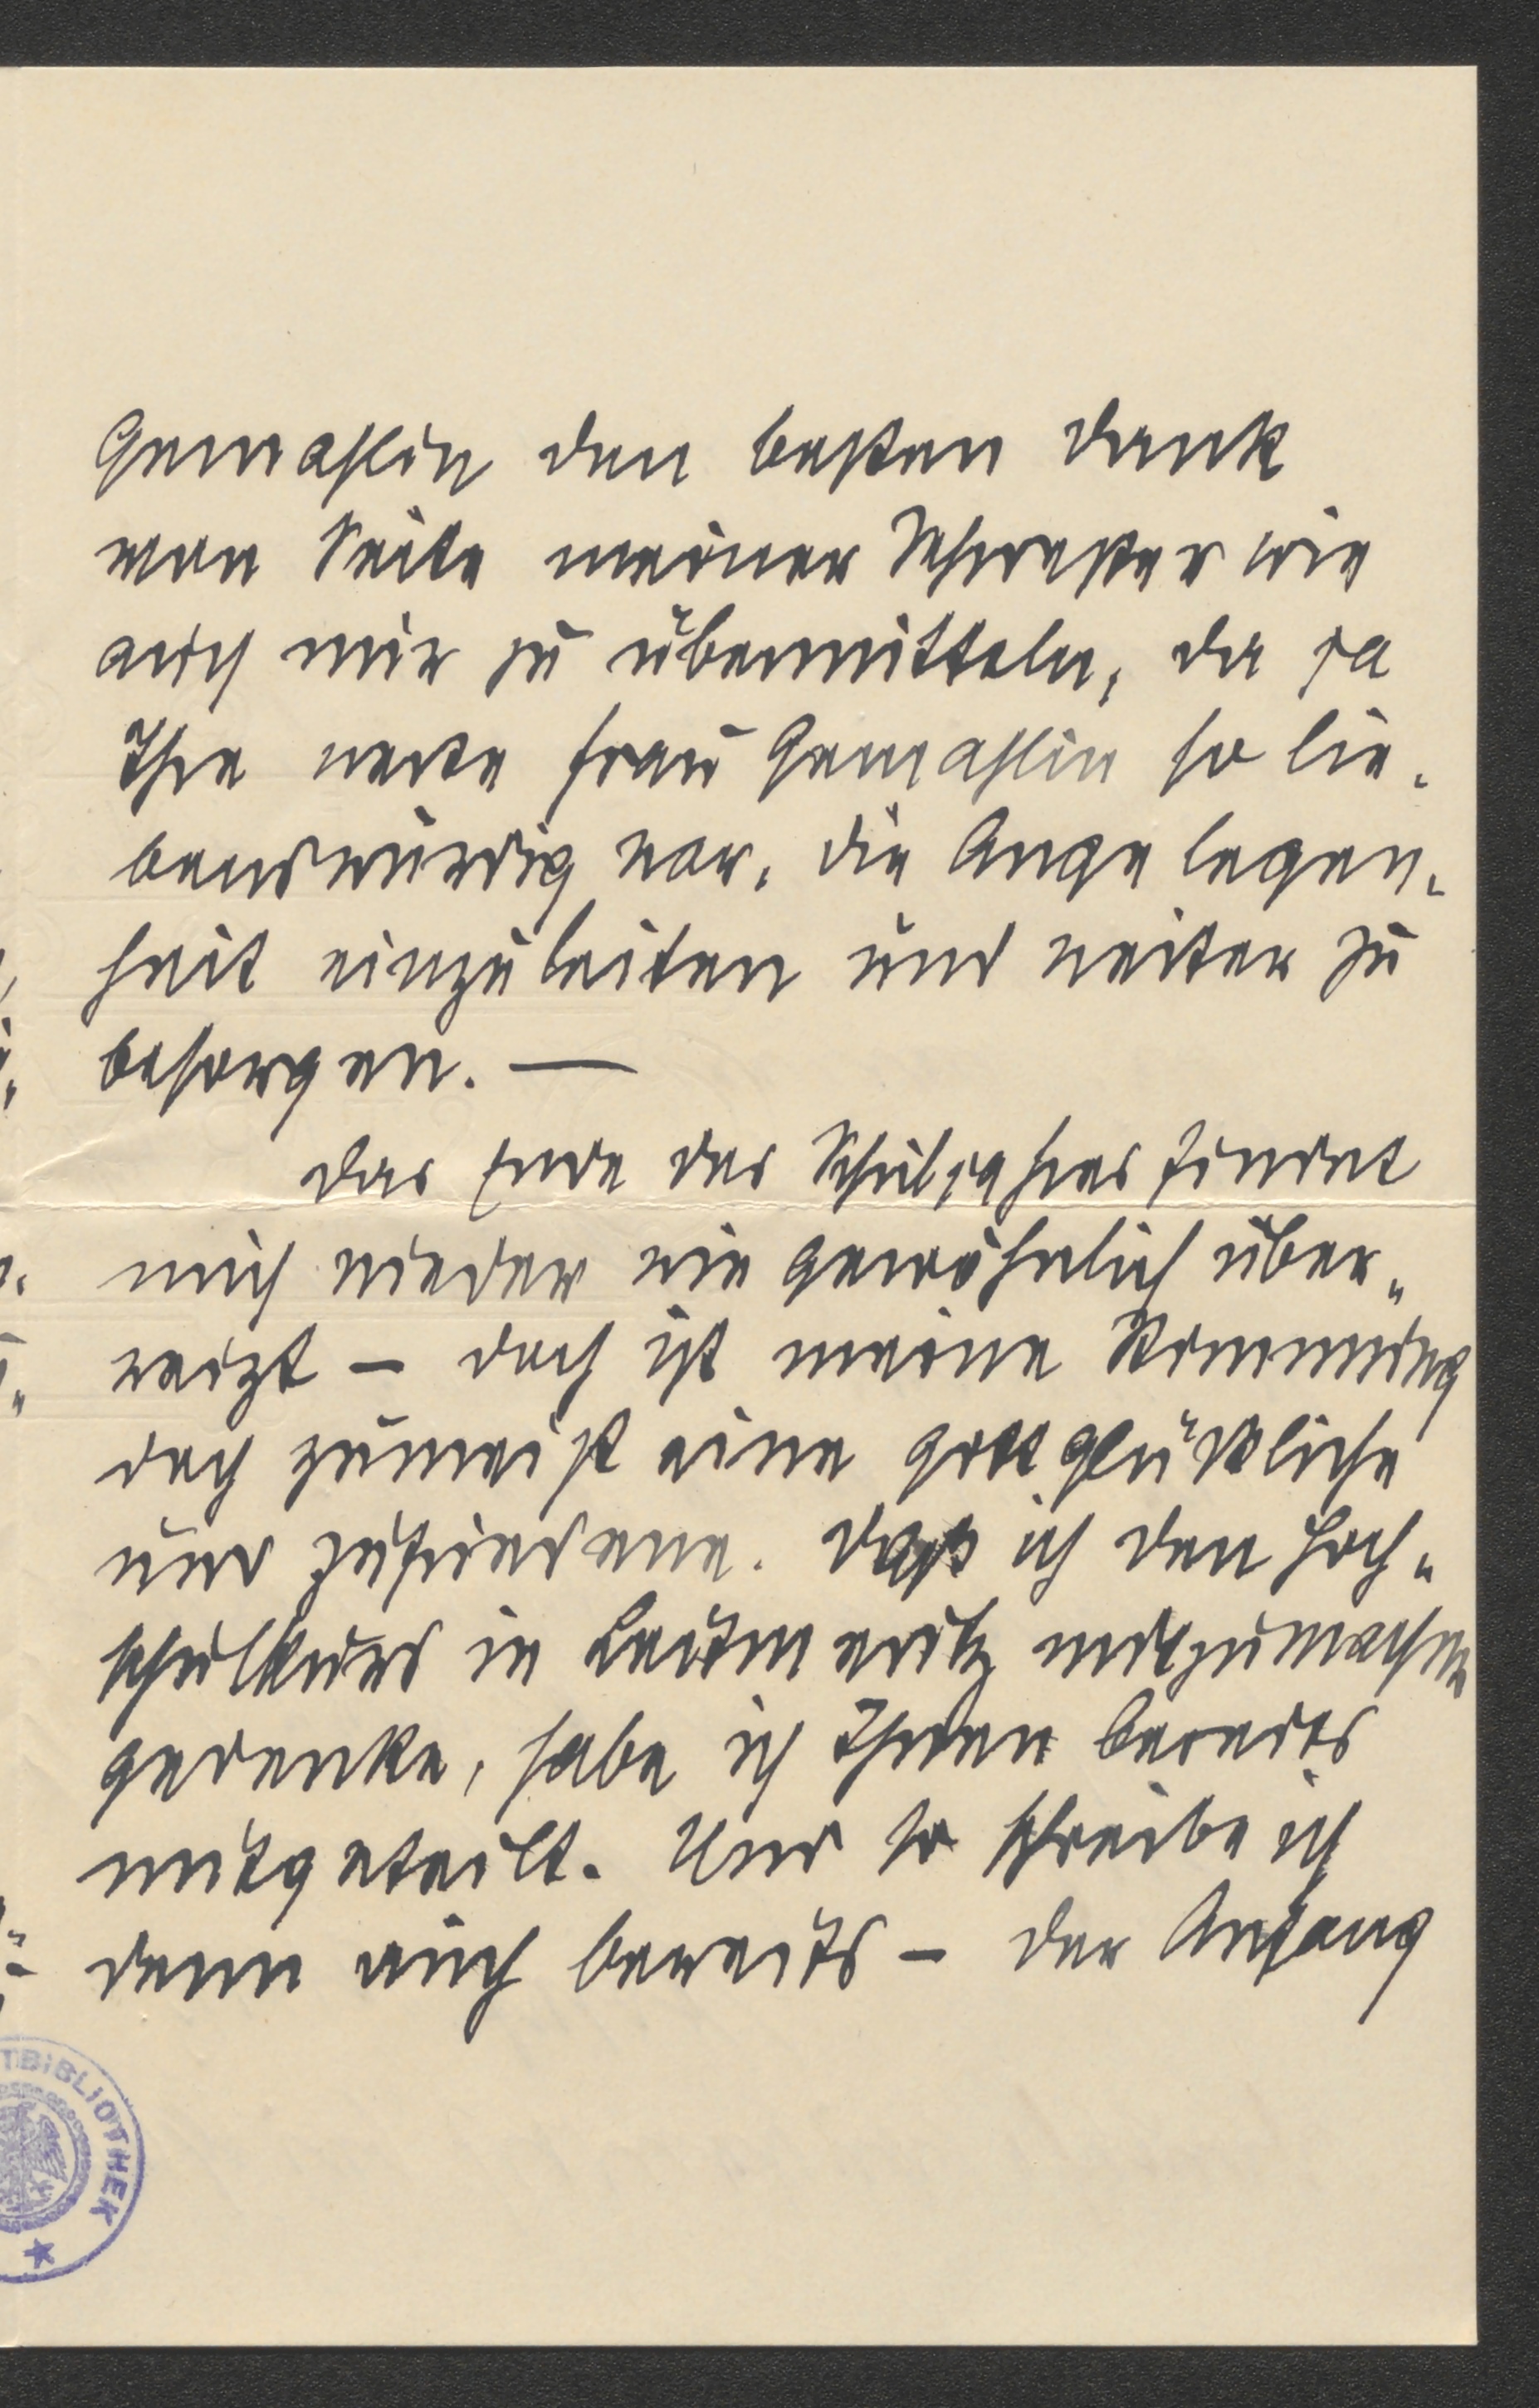 Gemahlin den besten Dank
von Seite meiner Schwester wie
auch mir zu übermitteln, da ja
Ihre werte Frau Gemahlin so lie-
benswürdig war, die Angelegen-
heit einzuleiten und weiter zu
besorgen. —
Das Ende des Schuljahres findet
mich wieder wie gewöhnlich über-
reizt – doch ist meine Stimmung
doch zumeist eine gottglückliche
und zufriedene. Daß ich den Hoch-
schulkurs in Leitmeritz mitzumachen
gedenke, habe ich Ihnen bereits
mitgeteilt. Und so schreibe ich
denn auch bereits – der Anfang
TBIBLIOTHEK